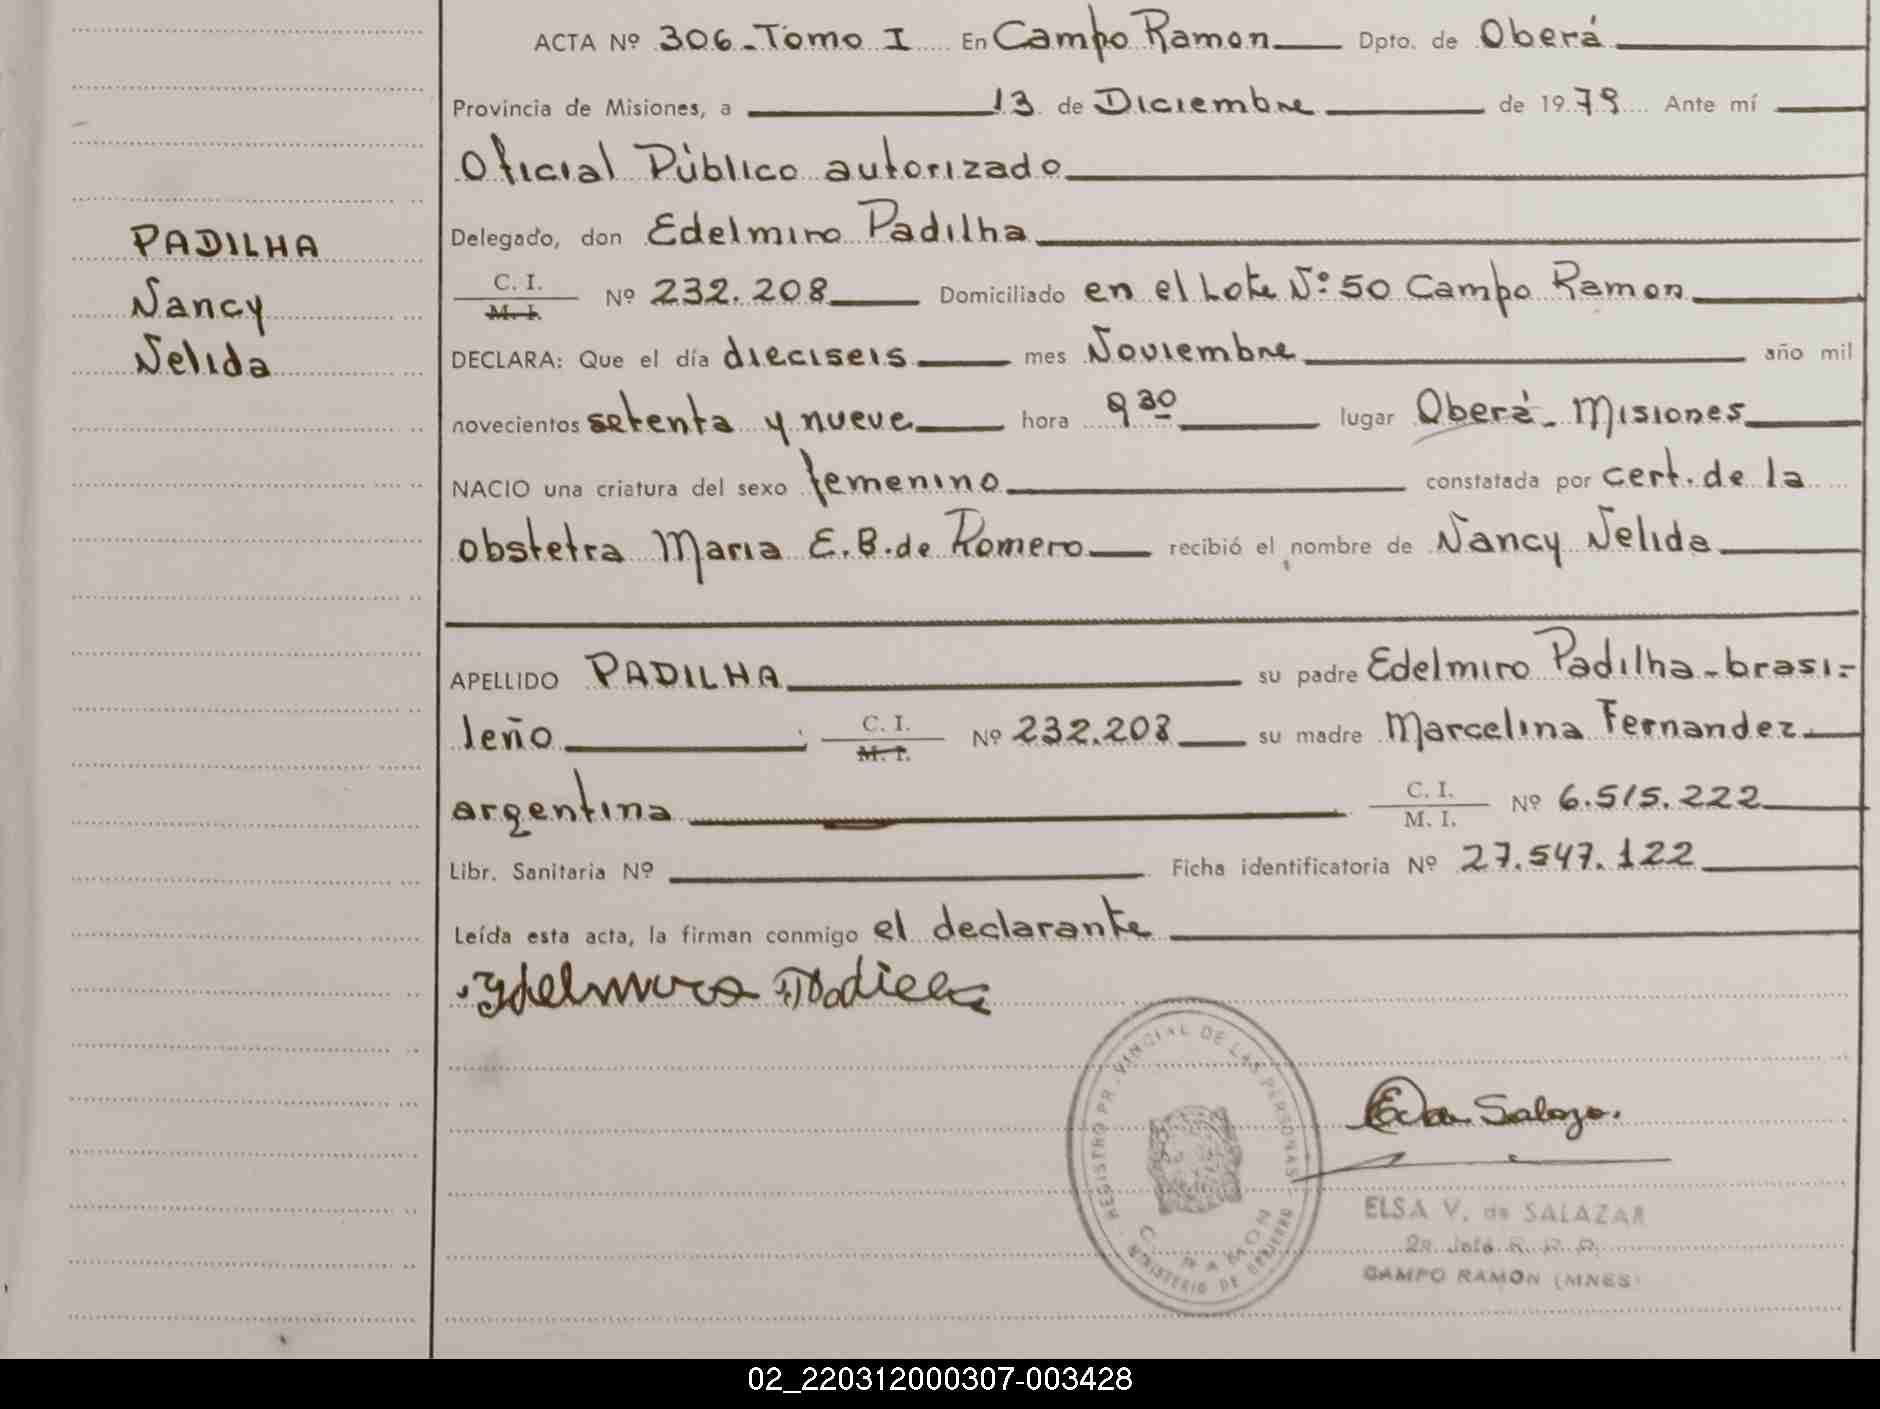 ACTA Nº 306_Tomo I En Campo Ramon Dpto. de Oberá
Provincia de Misiones, a 13 de Diciembre de 1979 Ante mí
Oficial Público autorizado
PADILHA
Nancy
Nelida
Delegado, don Edelmiro Padilha
C. I.
M. I. Nº 232.208 Domiciliado en el Lote Nº 50 Campo Ramon
DECLARA: Que el día dieciseis mes Noviembre año mil
novecientos setenta y nueve hora 9 30 lugar Oberá_ Misiones
NACIO una criatura del sexo femenino constatada por cert. de la
obstetra Maria E. B. de Romero recibió el nombre de Nancy Nelida
APELLIDO PADILHA su padre Edelmiro Padilha_brasi=
leño C. I. M. I. Nº 232.208 su madre Marcelina Fernandez
argentina C. I. M. I. Nº 6.515.222
Libr. Sanitaria Nº Ficha identificatoria Nº 27.547.122
Leída esta acta, la firman conmigo el declarante
REGISTRO PR VINCIAL DE LAS PERSONAS
C. RAMON
MINISTERIO DE GOBIERNO
ELSA V. de SALAZAR
CAMPO RAMON (MNES)
02_220312000307-003428